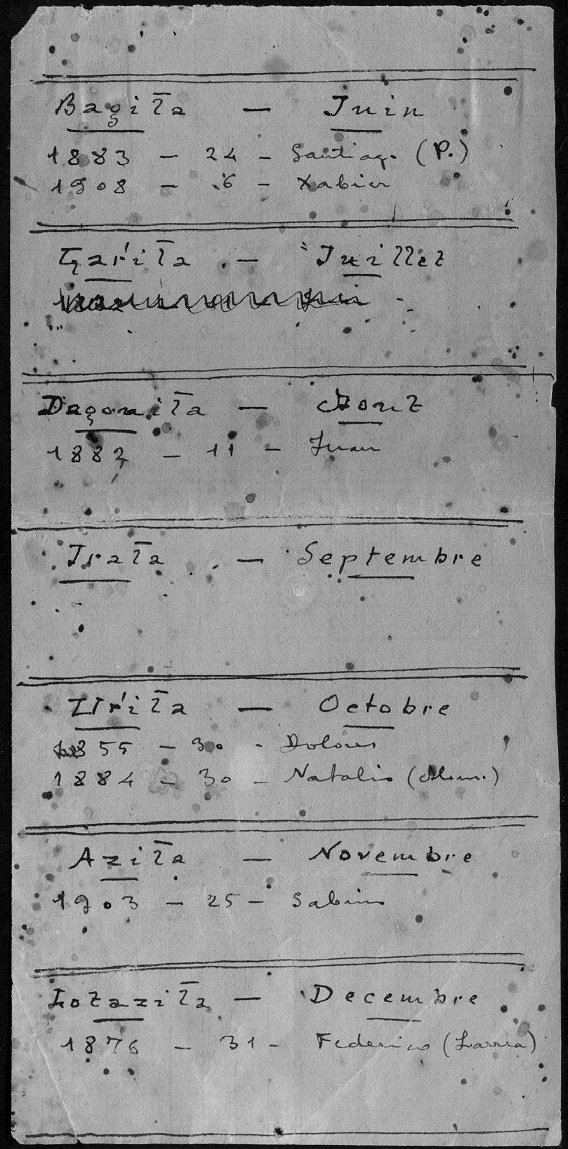 Bagiĺa — Juin
1883 - 24 - Santiago (P.)
1908 - 6 - Xabier
Gaŕiĺa - Juillet
Dagoniĺa — Aout
1882 - 11 - Juan
Iraĺa - Septembre
Uŕiĺa — Octobre
1855 - 30 - Dolores
1884 - 30 - Natalio
Aziĺa — Novembre
1903 - 25 - Sabin
Lotaziĺa — Decembre
1876 - 31 - Federico (Larrea)